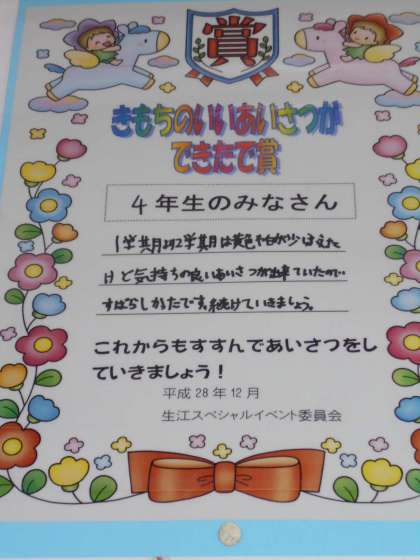 賞
きもちのいいあいさつが
できたで賞
4年生のみなさん
1学期より2学期は黄色それが少しふえた
けど気持ちの良いあいさつが出来ていたので…
すばらしかったです。続けていきましょう。
これからもすすんであいさつをし
ていきましょう！
平成28年12月
生江スペシャルイベント委員会